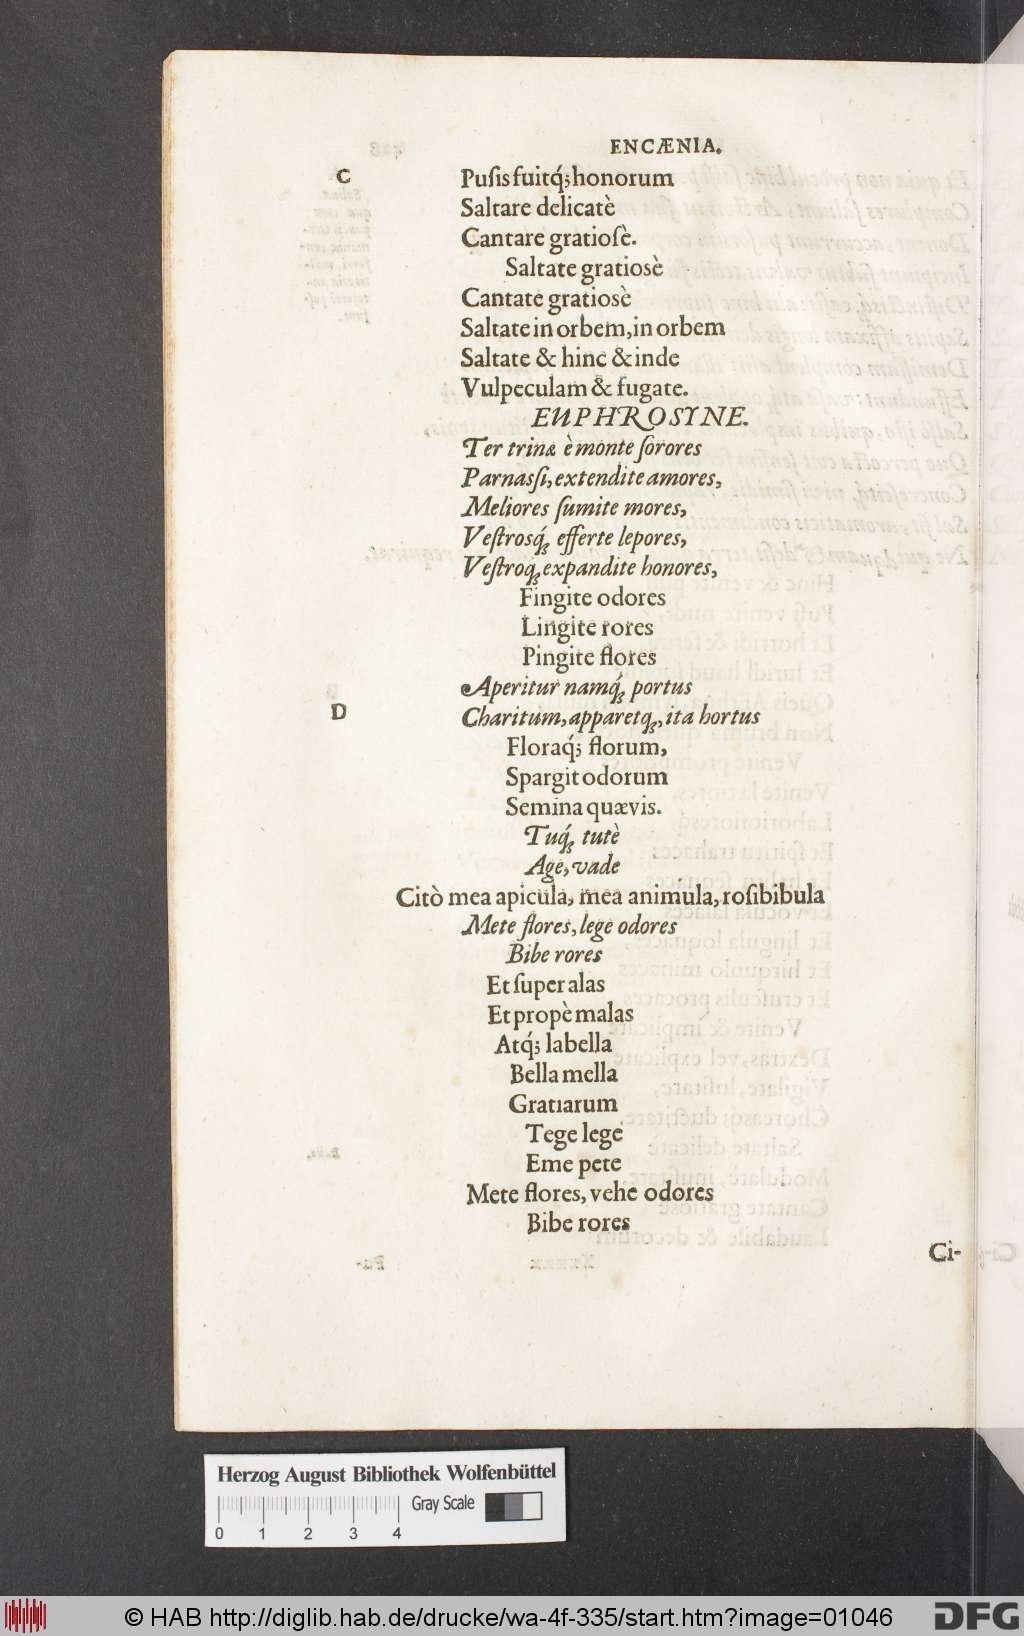 ENCÆNIA.
C
Puſis fuitq́; honorum
Saltare delicatè
Cantare gratioſè.
Saltate gratiosè
Cantate gratiosè
Saltate in orbem, in orbem
Saltate & hinc & inde
Vulpeculam & fugate.
EUPHROSYNE.
Ter trinæ è monte ſorores
Parnaſſi, extendite amores,
Meliores ſumite mores,
Veſtrosq́; efferte lepores,
Veſtroq; expandite honores,
Fingite odores
Lingite rores
Pingite flores
Aperitur namq́; portus
D
Charitum, apparetq;, ita hortus
Floraq́; florum,
Spargit odorum
Semina quævis.
Tuq́; tutè
Age, vade
Citò mea apicula, mea animula, roſibibula
Mete flores, lege odores
Bibe rores
Et ſuper alas
Et propè malas
Atq́; labella
Bella mella
Gratiarum
Tege lege
Eme pete
Mete flores, vehe odores
Bibe rores
Ci-
Herzog August Bibliothek Wolfenbüttel
Gray Scale
0 1 2 3 4
© HAB http://diglib.hab.de/drucke/wa-4f-335/start.htm?image=01046
DFG